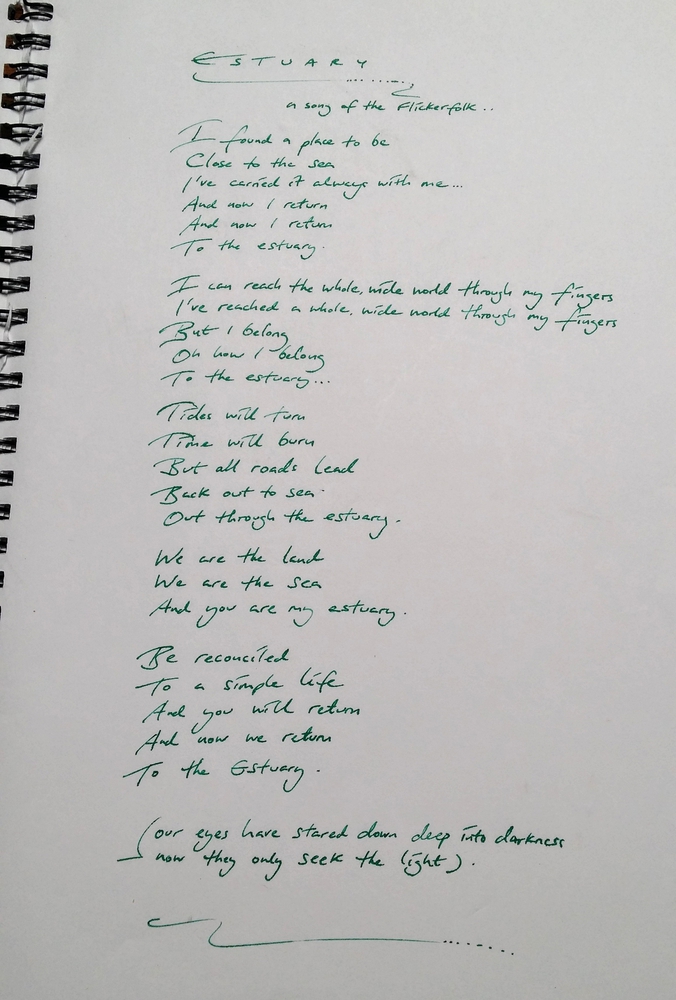 ESTUARY
a song of the Flickerfolk..
I found a place to be
Close to the sea
I've carried it always with me...
And now I return
And now I return
To the estuary.
I can reach the whole, wide world through my fingers
I've reached a whole, wide world through my fingers
But I belong
Oh how I belong
To the estuary...
Tides will turn
Time will burn
But all roads lead
Back out to sea.
Out through the estuary.
We are the land
We are the sea
And you are my estuary.
Be reconciled
To a simple life
And you will return
And now we return
To the Estuary.
(our eyes have stared down deep into darkness
now they only seek the light).